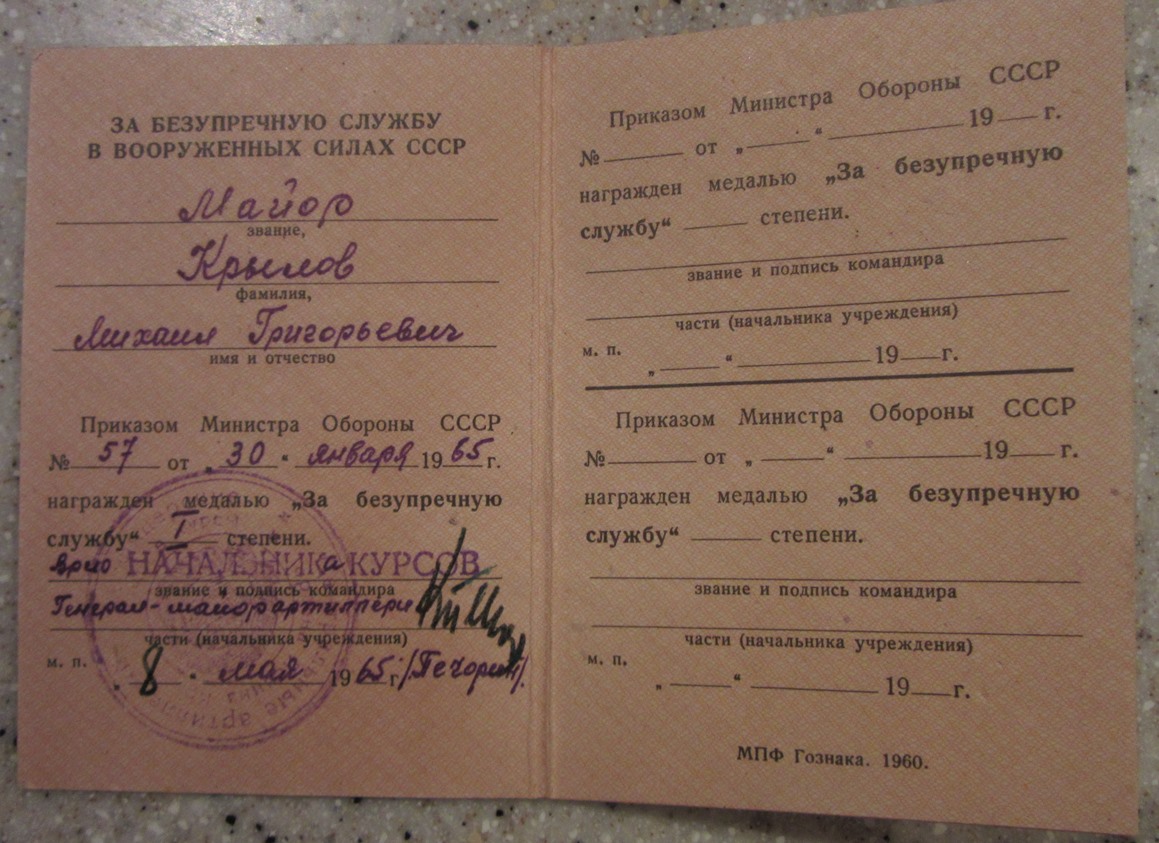 ЗА БЕЗУПРЕЧНУЮ СЛУЖБУ
В ВООРУЖЕННЫХ СИЛАХ СССР
Майор
звание,
Крылов
фамилия,
Михаил Григорьевич
имя и отчество
Приказом Министра Обороны СССР
№ 57 от „30“ января 1965 г.
награжден медалью „За безупречную
службу“ I степени.
Врио НАЧАЛЬНИКа КУРСОВ
звание и подпись командира
Генерал-майор артиллерии
части (начальника учреждения)
м. п. „8“ мая 1965 г. /Печорин/.
Приказом Министра Обороны СССР
№ от „ “ 19 г.
награжден медалью „За безупречную
службу“ степени.
звание и подпись командира
части (начальника учреждения)
м. п. „ “ 19 г.
Приказом Министра Обороны СССР
№ от „ “ 19 г.
награжден медалью „За безупречную
службу“ степени.
звание и подпись командира
части (начальника учреждения)
м. п. „ “ 19 г.
МПФ Гознака. 1960.